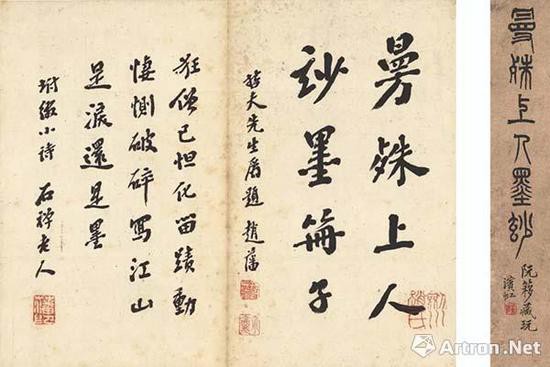 曼殊上人墨玅
阮簃藏玩
濱虹
曼殊上人
玅墨冊子
哲夫先生屬題 趙藩
狂僧已怛化留蹟動
悽惻破碎寫江山
是淚還是墨
坿綴小詩 石禪老人
Artron.Net